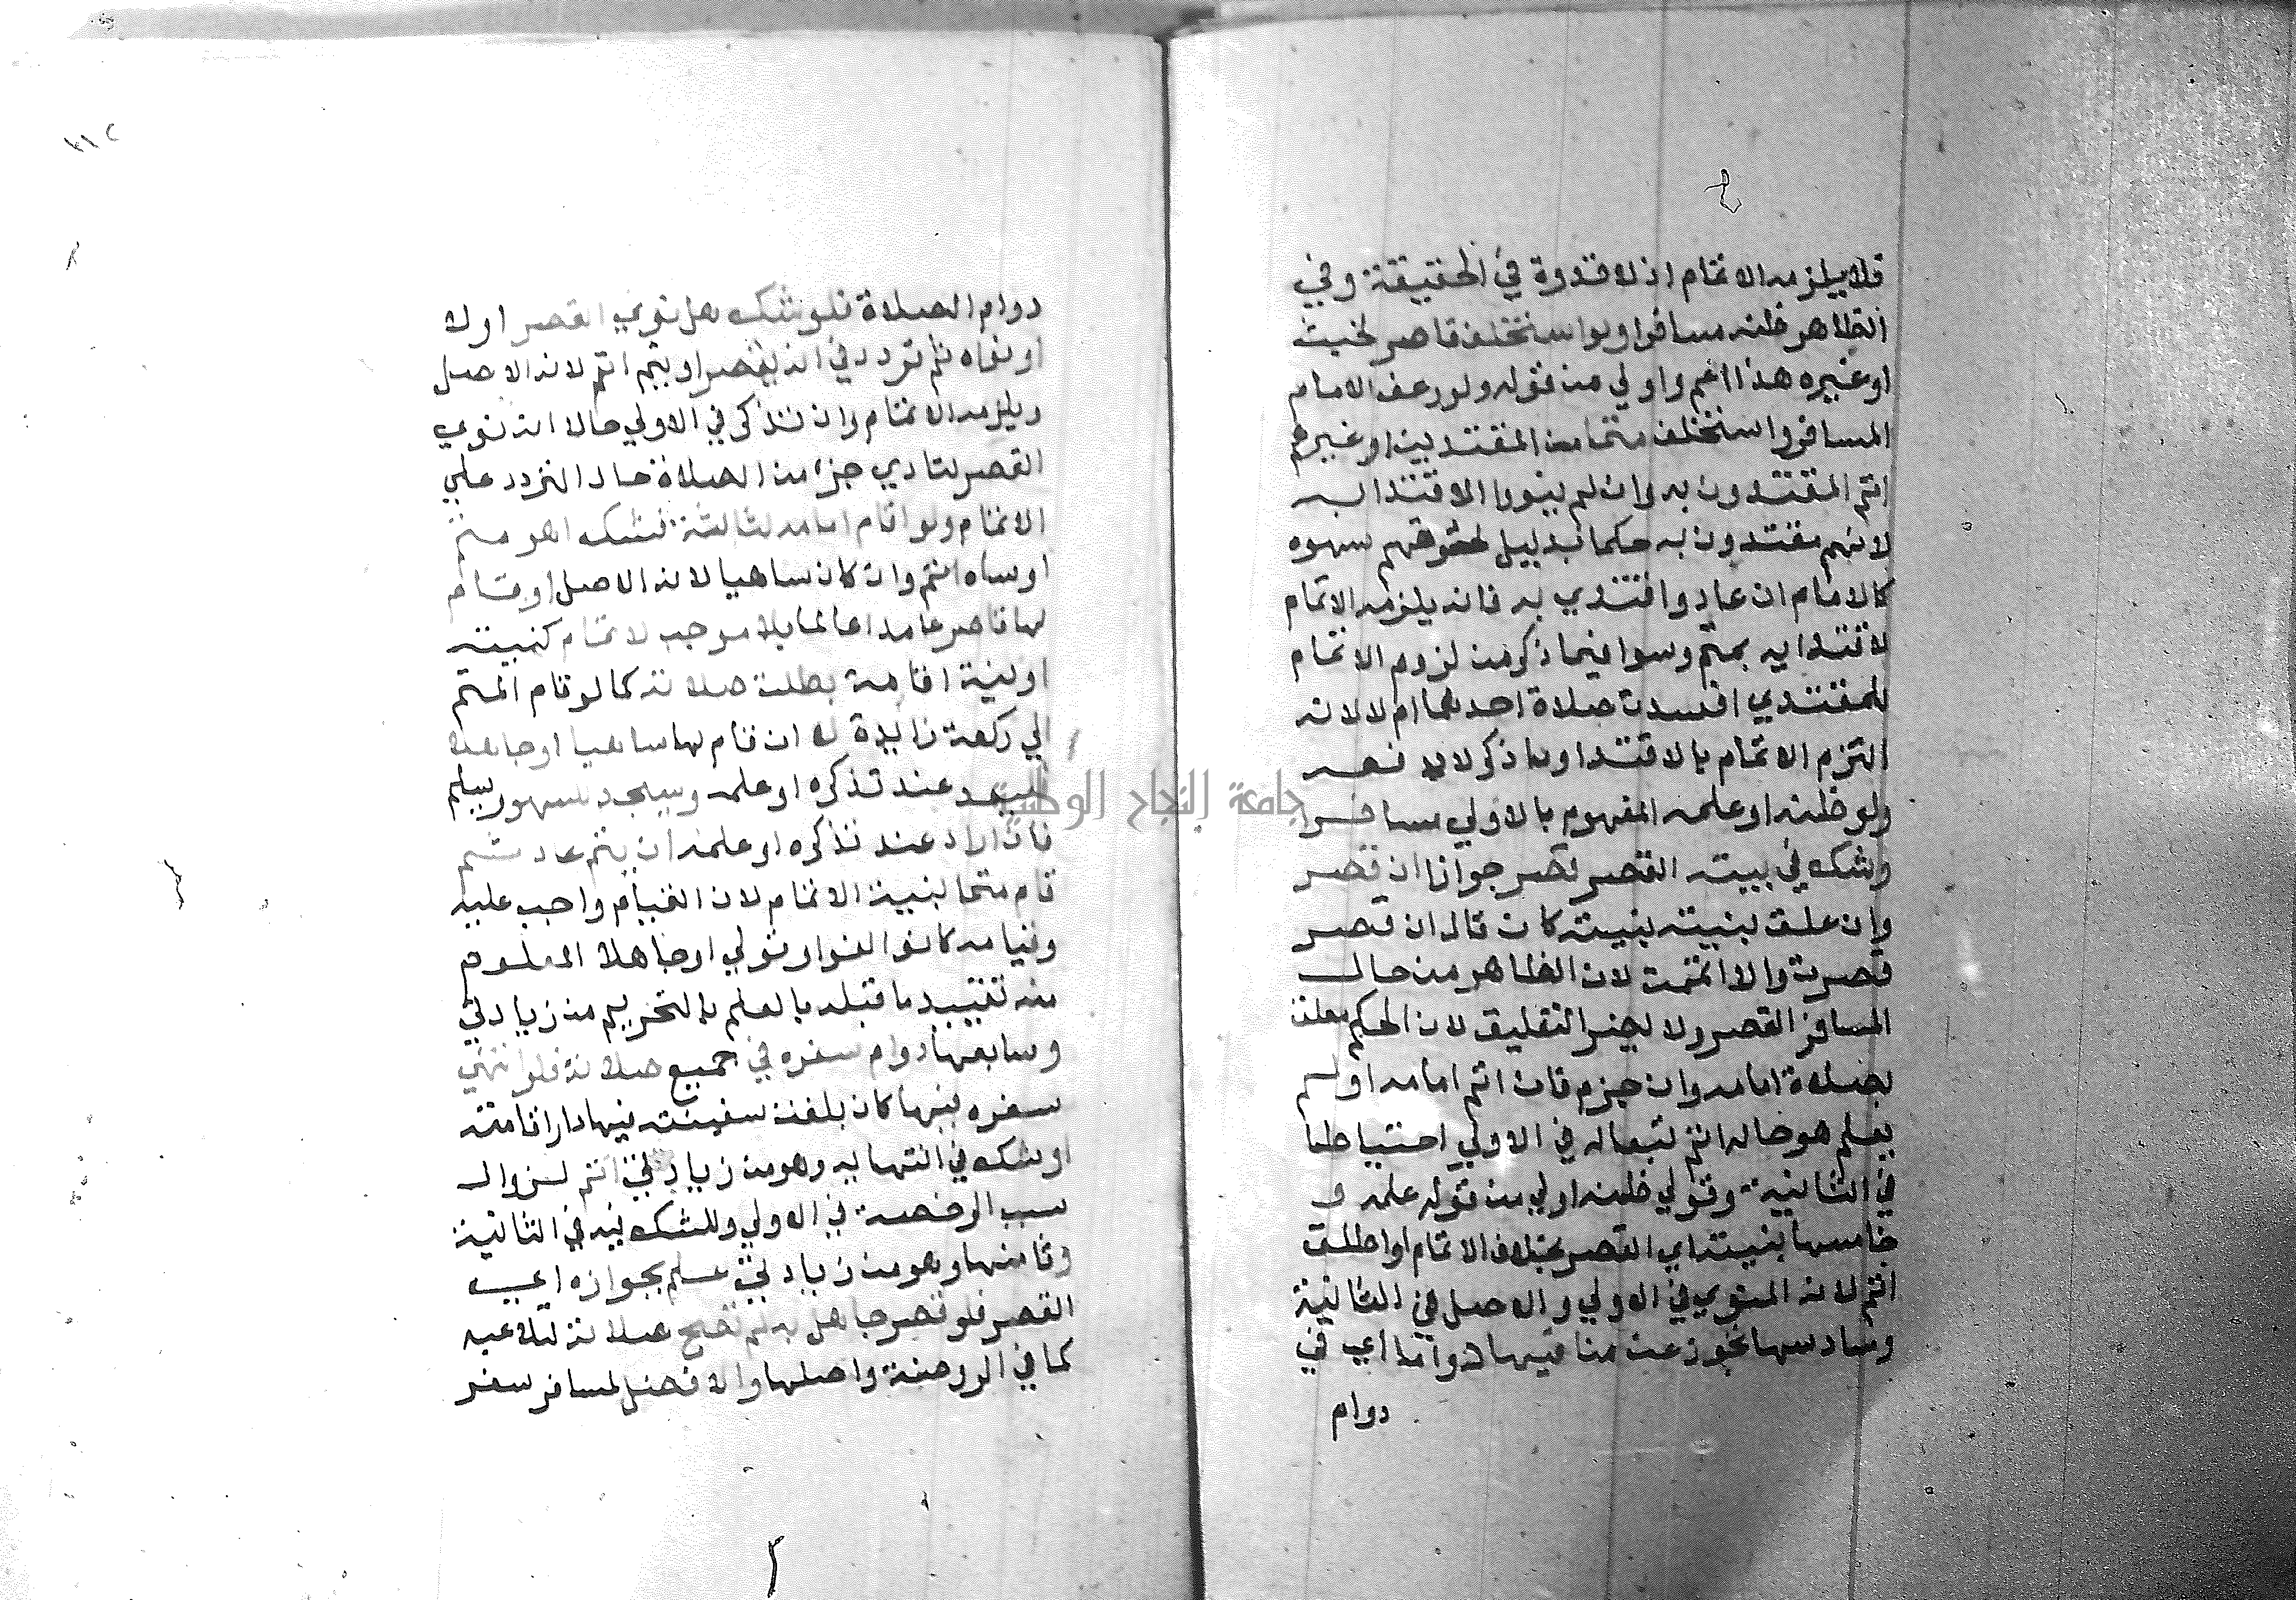 فلا يلزمه الاتمام اذ لا قدوة في الحقيقة وفي
الظاهر ظنه مسافرا ولو استخلف قاصر لخبث
او غيره هذا اعم واولي من قوله ولو رعف الامام
المسافر واستخلف متما من المقتدين او غيرهم
اتم المقتدون به وان لم ينووا الاقتدا به
لانهم مقتدون به حكما بدليل لحوقهم سهوه
كالامام ان عاد واقتدي به فانه يلزمه الاتمام
لاقتدايه بمتم وسوا فيما ذكر من لزوم الاتمام
للمقتدي افسدت صلاة احدهما ام لا لانه
التزم الاتمام بالاقتدا وما ذكر لا يدفعه
ولو ظنه او علمه المفهوم بالاولي مسافرا
وشك في نيته القصر قصر جوازا ان قصر
وان علق نيته بنيته كان قال ان قصر
قصرت والا اتممت لان الظاهر من حال
المسافر القصر ولا يضر التعليق لان الحكم معلق
بصلاة امامه وان جزم فان اتم امامه او لم
يعلم هو حاله اتم تبعا له في الاولي احتياطا
في الثانية وقولي ظنه اولي من قوله علمه و
خامسها نيته اي القصر بخلاف الاتمام او اطلق
اتم لانه المنوي في الاولي والاصل في الثانية
وسادسها تحرز عن منافيها دواما اي في
دوام
دوام الصلاة فلو شك هل نوي القصر اولا
او نواه ثم تردد في انه يقصر او يتم اتم لانه الاصل
ويلزمه الاتمام وان تذكر في الاولي حالا انه نوي
القصر لتادي جزء من الصلاة حال التردد علي
الاتمام ولو قام امامه لثالثة فشك اهو متم
او ساه اتم وان كان ساهيا لانه الاصل او قام
لها قاصر عامدا عالما بلا موجب لاتمام كنيته
او نية اقامة بطلت صلاته كما لو قام المتم
الي ركعة زايدة لا ان قام لها ساهيا او جاهلا
فليعد عند تذكره او علمه ويسجد لسهو ويسلم
فان اراد عند تذكره او علمه ان يتم عاد ثم
قام متما بنية الاتمام لان القيام واجب عليه
وقيامه كان لغوا وقولي او جاهلا المعلوم
منه تقييد ما قبله بالعلم بالتحريم من زيادتي
وسابعها دوام سفره في جميع صلاته فلو انتهي
سفره فيها كان بلغت سفينته فيها دار اقامته
او شك في انتهايه وهو من زيادتي اتم لزوال
سبب الرخصة في الاولي وللشك فيه في الثانية
وثامنها وهو من زيادتي علم بجوازه اي
القصر فلو قصر جاهل به لم تصح صلاته لتلاعبه
كما في الروضة واصلها والافضل لمسافر سفر
جامعة النجاح الوطنية